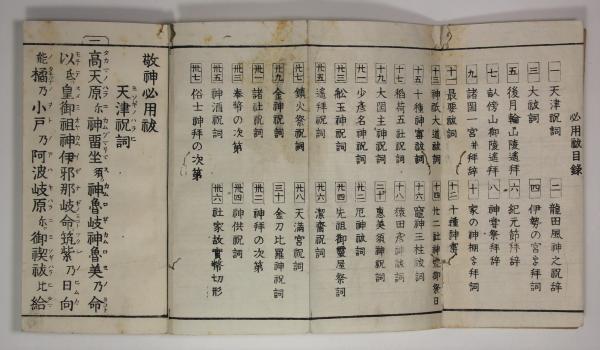 必用祓目録
一 天津祝詞
二 龍田風神之祝辞
三 大祓詞
四 伊勢の宮拝詞
五 後月輪山陵遙拜
六 紀元節拜辞
七 畝傍山御陵遙拜
八 神嘗祭拜辞
九 諸國一宮拜辞
十 家の神棚拜詞
十一 最要祓詞
十二 十種神寳
十三 神祇大道祓詞
十四 廿二社神号御祭日
十五 十種神寳祓詞
十六 竈神三柱祓詞
十七 稲荷五社祝詞
十八 猿田彦神祓詞
十九 大國主神祝詞
二十 惠美須神祝詞
廿一 少彦名神祝詞
廿二 厄神祓詞
廿三 舩玉神祝詞
廿四 先祖御霊屋祭詞
廿五 遙拜祝詞
廿六 潔齋祝詞
廿七 鎮火祭祝詞
廿八 天満宮祝詞
廿九 金神祝詞
三十 金刀比羅神祝詞
卅一 諸社祝詞
卅二 神拜の次第
卅三 奉幣の次第
卅四 神供祝詞
卅五 神酒祝詞
卅六 社家故實幣切形
卅七 俗士神拜の次第
敬神必用祓
一 天津祝詞
高天原尓神留坐須神魯岐神魯美乃命
以氐皇御祖神伊邪那岐命筑紫乃日向
能橘乃小戸乃阿波岐原尓御禊祓比給